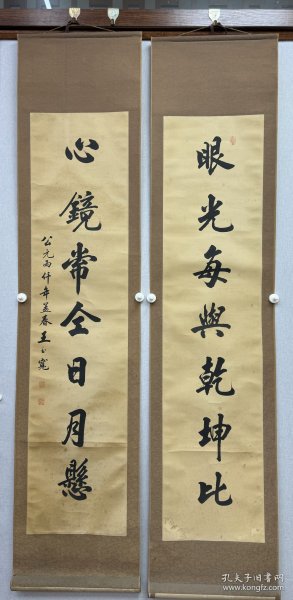 眼光每與乾坤比
心鏡常仝日月懸
公元兩仟年孟春王
孔夫子旧书网
www.kongfz.com